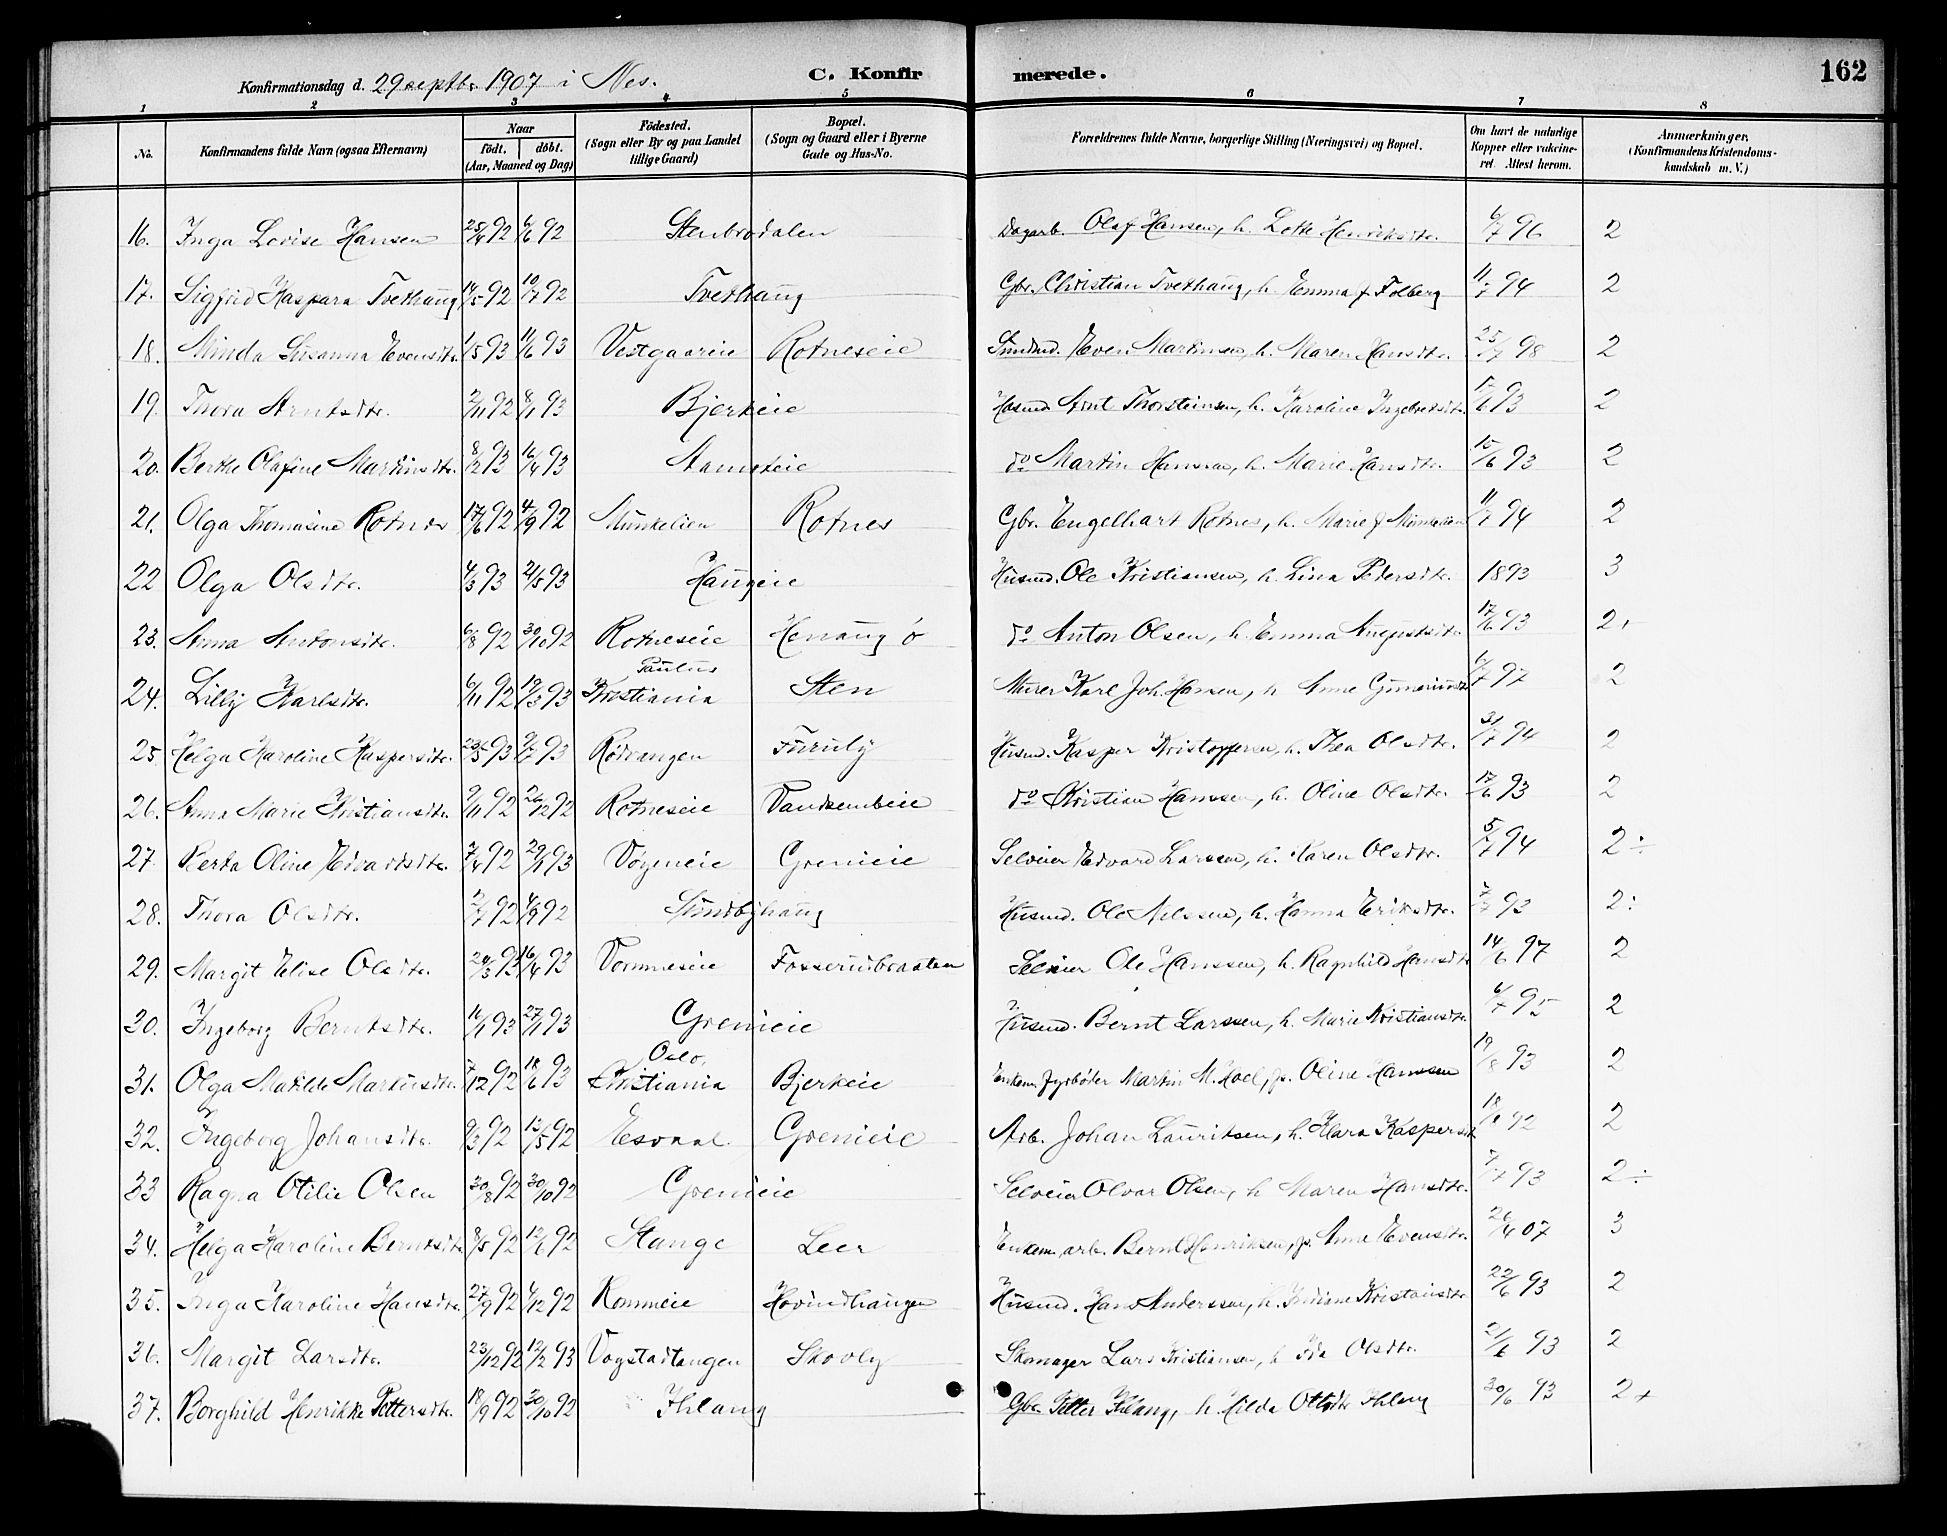 Konfirmationsdag d. 29 septbr. 1907 i Nes. C. Konfirmerede. 162
1 2 3 4 5 6 7 8
No. Konfirmandens fulde Navn (ogsaa Efternavn) Naar födt. döbt. (Aar, Maaned og Dag) Födested. (Sogn eller By og paa Landet tillige Gaard) Bopæl. (Sogn og Gaard eller i Byerne Gade og Hus-No. Forældrenes fulde Navne, borgerlige Stilling (Næringsvei) og Bopæl. Om havt de naturlige Kopper eller vakcineret. Attest herom. Anmærkninger. (Konfirmandens Kristendomskundskab m. V.)
16. Inga Lovise Hansen 25/4 92 6/6 92 Stenbrodalen Dagarb. Olaf Hansen, h. Lotte Henriksdtr. 6/7 96 2
17. Sigfrid Kaspara Tvethaug 14/5 92 10/7 92 Tvethaug Gbr. Christian Tvethaug, h. Emma f Folberg 11/7 94 2
18. Minda Susanna Evensdtr. 1/5 93 11/6 93 Vestgaareie Rotneseie Even Martinsen, h. Maren Hansdtr. 25/7 98 2
19. Thora Arntsdtr. 2/11 92 8/1 93 Bjerkeie Husmd Arnt Thorsteinsen, h. Karoline Ingebretsdtr. 93 2
20. Berthe Olafine Martinsdtr. 8/2 93 16/4 93 do Martin Hansen, h. Marie Hansdtr. 15/6 93 2
21. Olga Thomasine Rotnes 17/6 92 4/9 92 Munkelien Rotnes Gbr. Engelhart Rotnes, h. Marie f Munkelien 11/7 94 2
22 Olga Olsdtr. 4/3 93 21/5 93 Haugeie Husmd. Ole Kristiansen, h. Lina Pedersdtr. 1893 3
23. Anna Antonsdtr. 6/8 92 30/10 92 Rotneseie Herraug ø do Anton Olsen, h. Emma Augustsdtr 17/6 93 2
24. Lilly Karlsdtr. 6/11 92 19/3 93 Paulus Kristiania Sten Murer Karl Joh. Hansen, h Anne 6/7 97 2
25 Helga Karoline Kaspersdtr. 93 9/7 93 Rödvangen Furuly Husmd. Kasper Kristoffersen, h. Thea Olsdtr. 31/7 94 2
26. Anna Marie Kristiansdtr. 9/11 92 26/12 92 Rotneseie Kristian Hanssen, h. Oline Olsdtr. 17/6 93 2
27. Berta Oline Edvardsdtr. 7/4 92 29/1 93 Grenieie Selveier Edvard Larssen, h. Karen Olsdtr. 5/7 94 2 ÷
28. Thora Olsdtr. 2/7 92 4/9 92 Sundbyhaug Husmd. Ole Nilssen, h. Hanna Eriksdtr. 93 2:
29. Margit Elise Olsdtr. 93 16/4 93 Vormneseie Fosserudbraaten Selveier Ole Hanssen, h. Ragnhild Hansdtr 14/6 97 2
30. Ingeborg Berntsdtr. 16/1 93 27/1 93 Grenieie Husmd. Bernt Larssen, h. Marie Kristiansdtr. 6/7 95 2
31. Olga Matilde Martinsdtr. 7/12 92 18/6 93 Oslo, Christiania Bjerkeie Enkem. fyrböder Martin M. Hoel, p. Oline Hanssen 19/8 93 2
32. Ingeborg Johansdtr. 9/3 92 15/5 92 Esvaal Grenieie Arb. Johan Lauritsen, h. Klara Kaspersdtr 92 2
33 Ragna Otilie Olsen 30/8 92 30/10 92 Grenieie Selveier Olvar Olsen, h Maren Hansdtr. 93 2 ÷
34. Helga Karoline Berntsdtr. 8/5 92 12/6 92 Stange Leer Enkem. arb. Bernt Henriksen, p. Anna Evensdtr. 26/4 07 3
35. Inga Karoline Hansdtr. 27/9 92 4/12 92 Hovindhaugen Husmd. Hans Anderssen, h. Indiane Kristiansdtr 22/6 93 2
36. Margit Larsdtr. 23/12 92 12/2 93 Vogstadtangen Skovly Skomager Lars Kristiansen, h Ida Olsdtr. 21/6 93 2
37. Borghild Henrikke Pettersdtr. 18/9 92 30/10 92 Ihlang Gbr. Petter Ihlang, h. Hilda Ottsdtr Ihlang 30/6 93 2 +